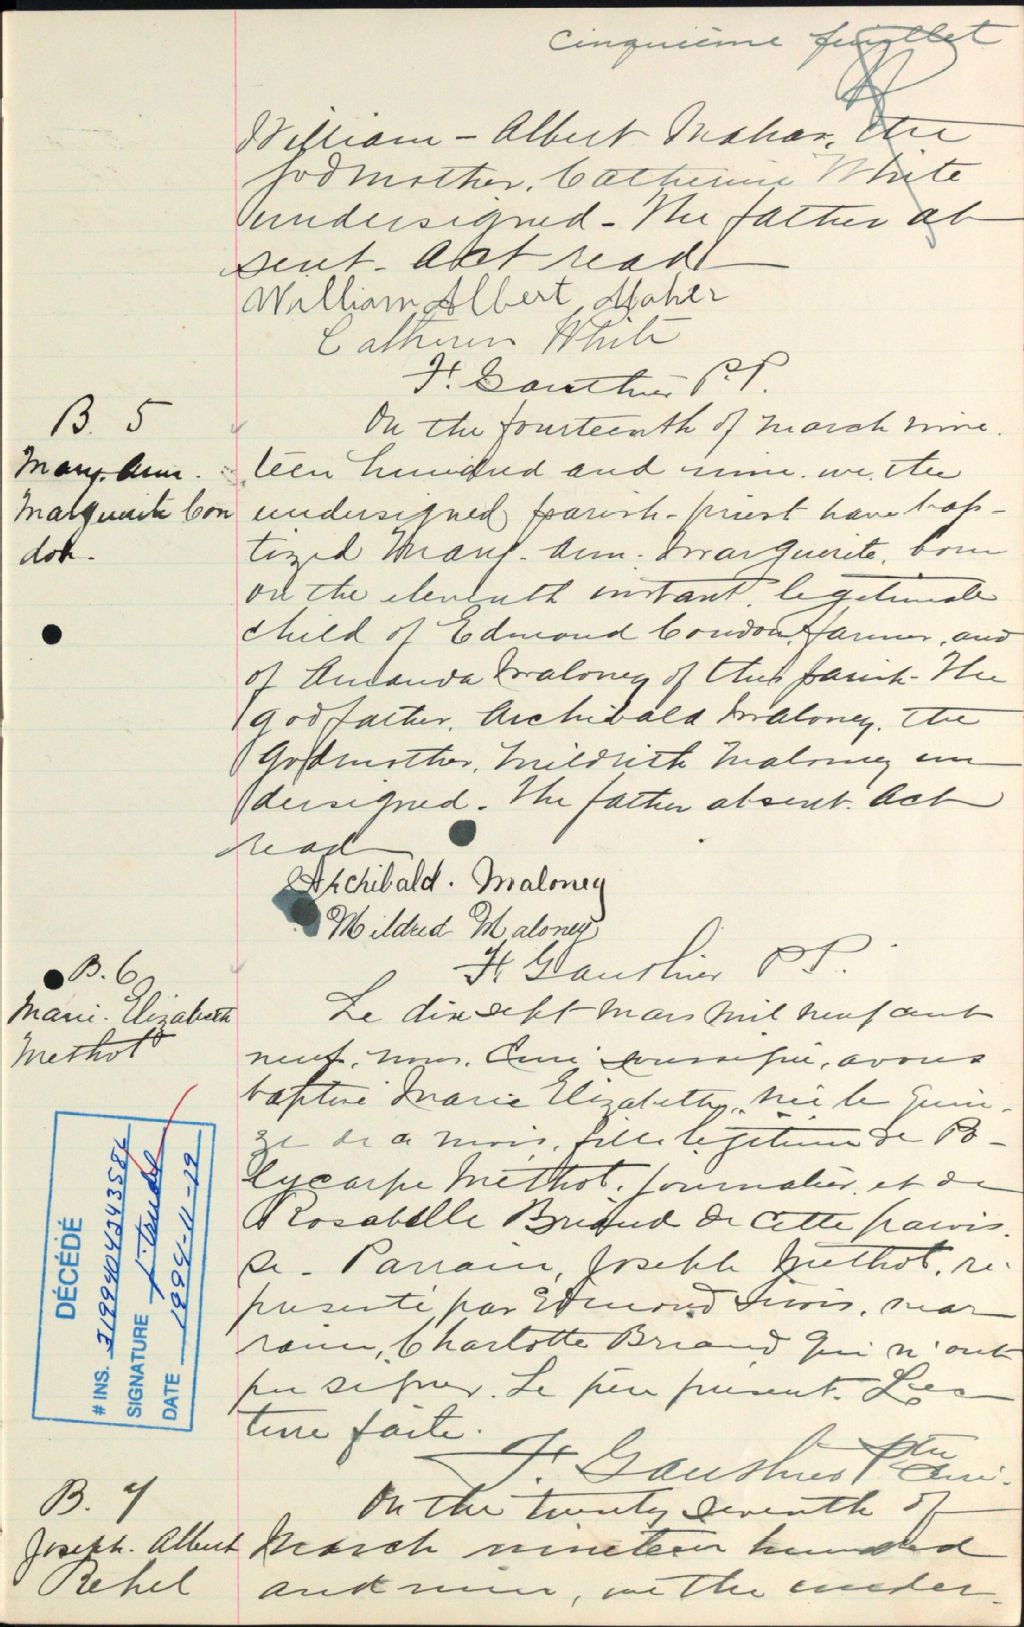 cinquième feuillet
William - Albert Mahar, the
godmother, Catherine White
undersigned - The father ab
sent. Act read
William Albert Maher
Catheren White
F. Gauthier P.P.
B. 5
Mary. Ann.
Marguerite Con
don.
On the fourteenth of March nine.
teen hundred and nine. we, the
undersigned parish-priest have bap-
tized Mary. Ann. Marguerite, born
on the eleventh instant, legitimate
child of Edmond Condon, farmer, and
of Amanda Maloney of this parish. The
godfather, Archibald Maloney, the
godmother, Mildrith Maloney un
dersigned. The father absent. Act
read
Archibald. Maloney
Mildred Maloney
F. Gauthier P.P.
B. 6
Marie. Elizabeth
Methot
Le dix sept Mars mil neuf cent
neuf, nous, Curé soussigné, avons
baptisé Marie Elizabeth, née le quin-
ze de ce mois, fille légitime de Po-
lycarpe Methot, journalier, et de
Rosabelle Briand de cette parois.
se - Parrain, Joseph Methot, re-
présenté par Edmond Sirois, mar
raine, Charlotte Briand qui n'ont
pu signer. Le père présent. Lec
ture faite.
F. Gauthier Ptre Curé.
DÉCÉDÉ
# INS. 3199404243586
SIGNATURE
DATE 1994-11-19
B. 7
Joseph. Albert
Rehel
On the twenty seventh of
March nineteen hundred
and nine, we the under-